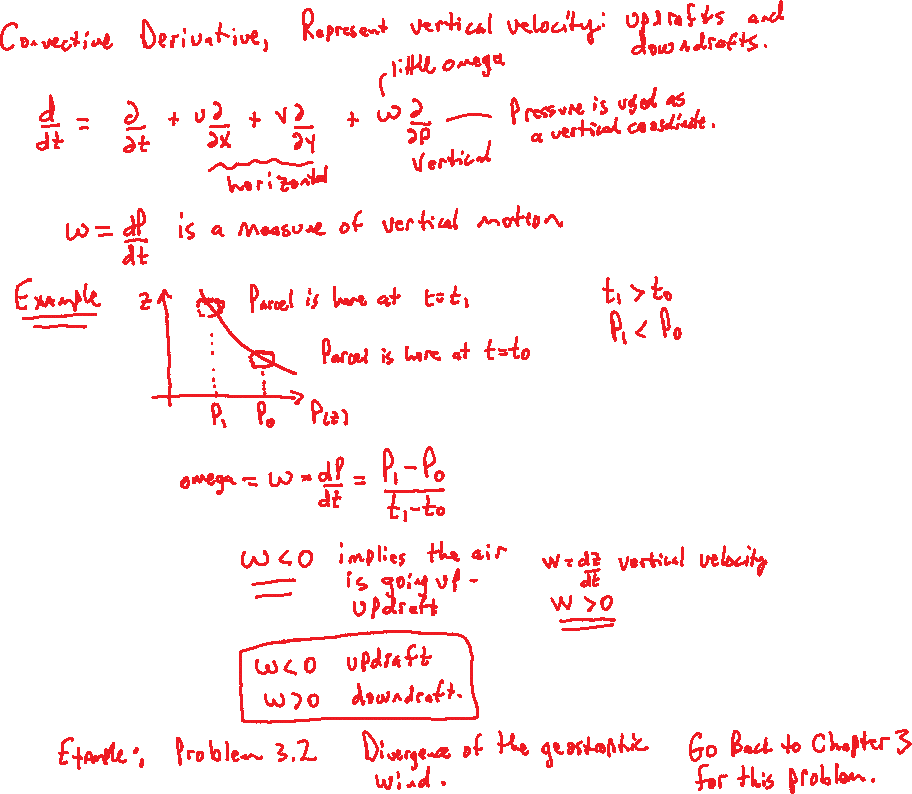 Convective Derivative, Represent vertical velocity: updrafts and downdrafts.
little omega
d/dt = ∂/∂t + u∂/∂x + v∂/∂y + ω∂/∂p
Pressure is used as
a vertical coordinate.
horizontal
Vertical
ω = dP/dt is a measure of vertical motion
Example
z
Parcel is here at t=t₁
t₁ > t₀
P₁ < P₀
Parcel is here at t=t₀
P₁ P₀ P(z)
omega = ω = dP/dt = (P₁-P₀)/(t₁-t₀)
ω<0 implies the air
is going up -
updraft
w = dz/dt vertical velocity
w >0
ω<0 updraft
ω>0 downdraft.
Example: Problem 3.2 Divergence of the geostrophic wind. Go Back to Chapter 3 for this problem.